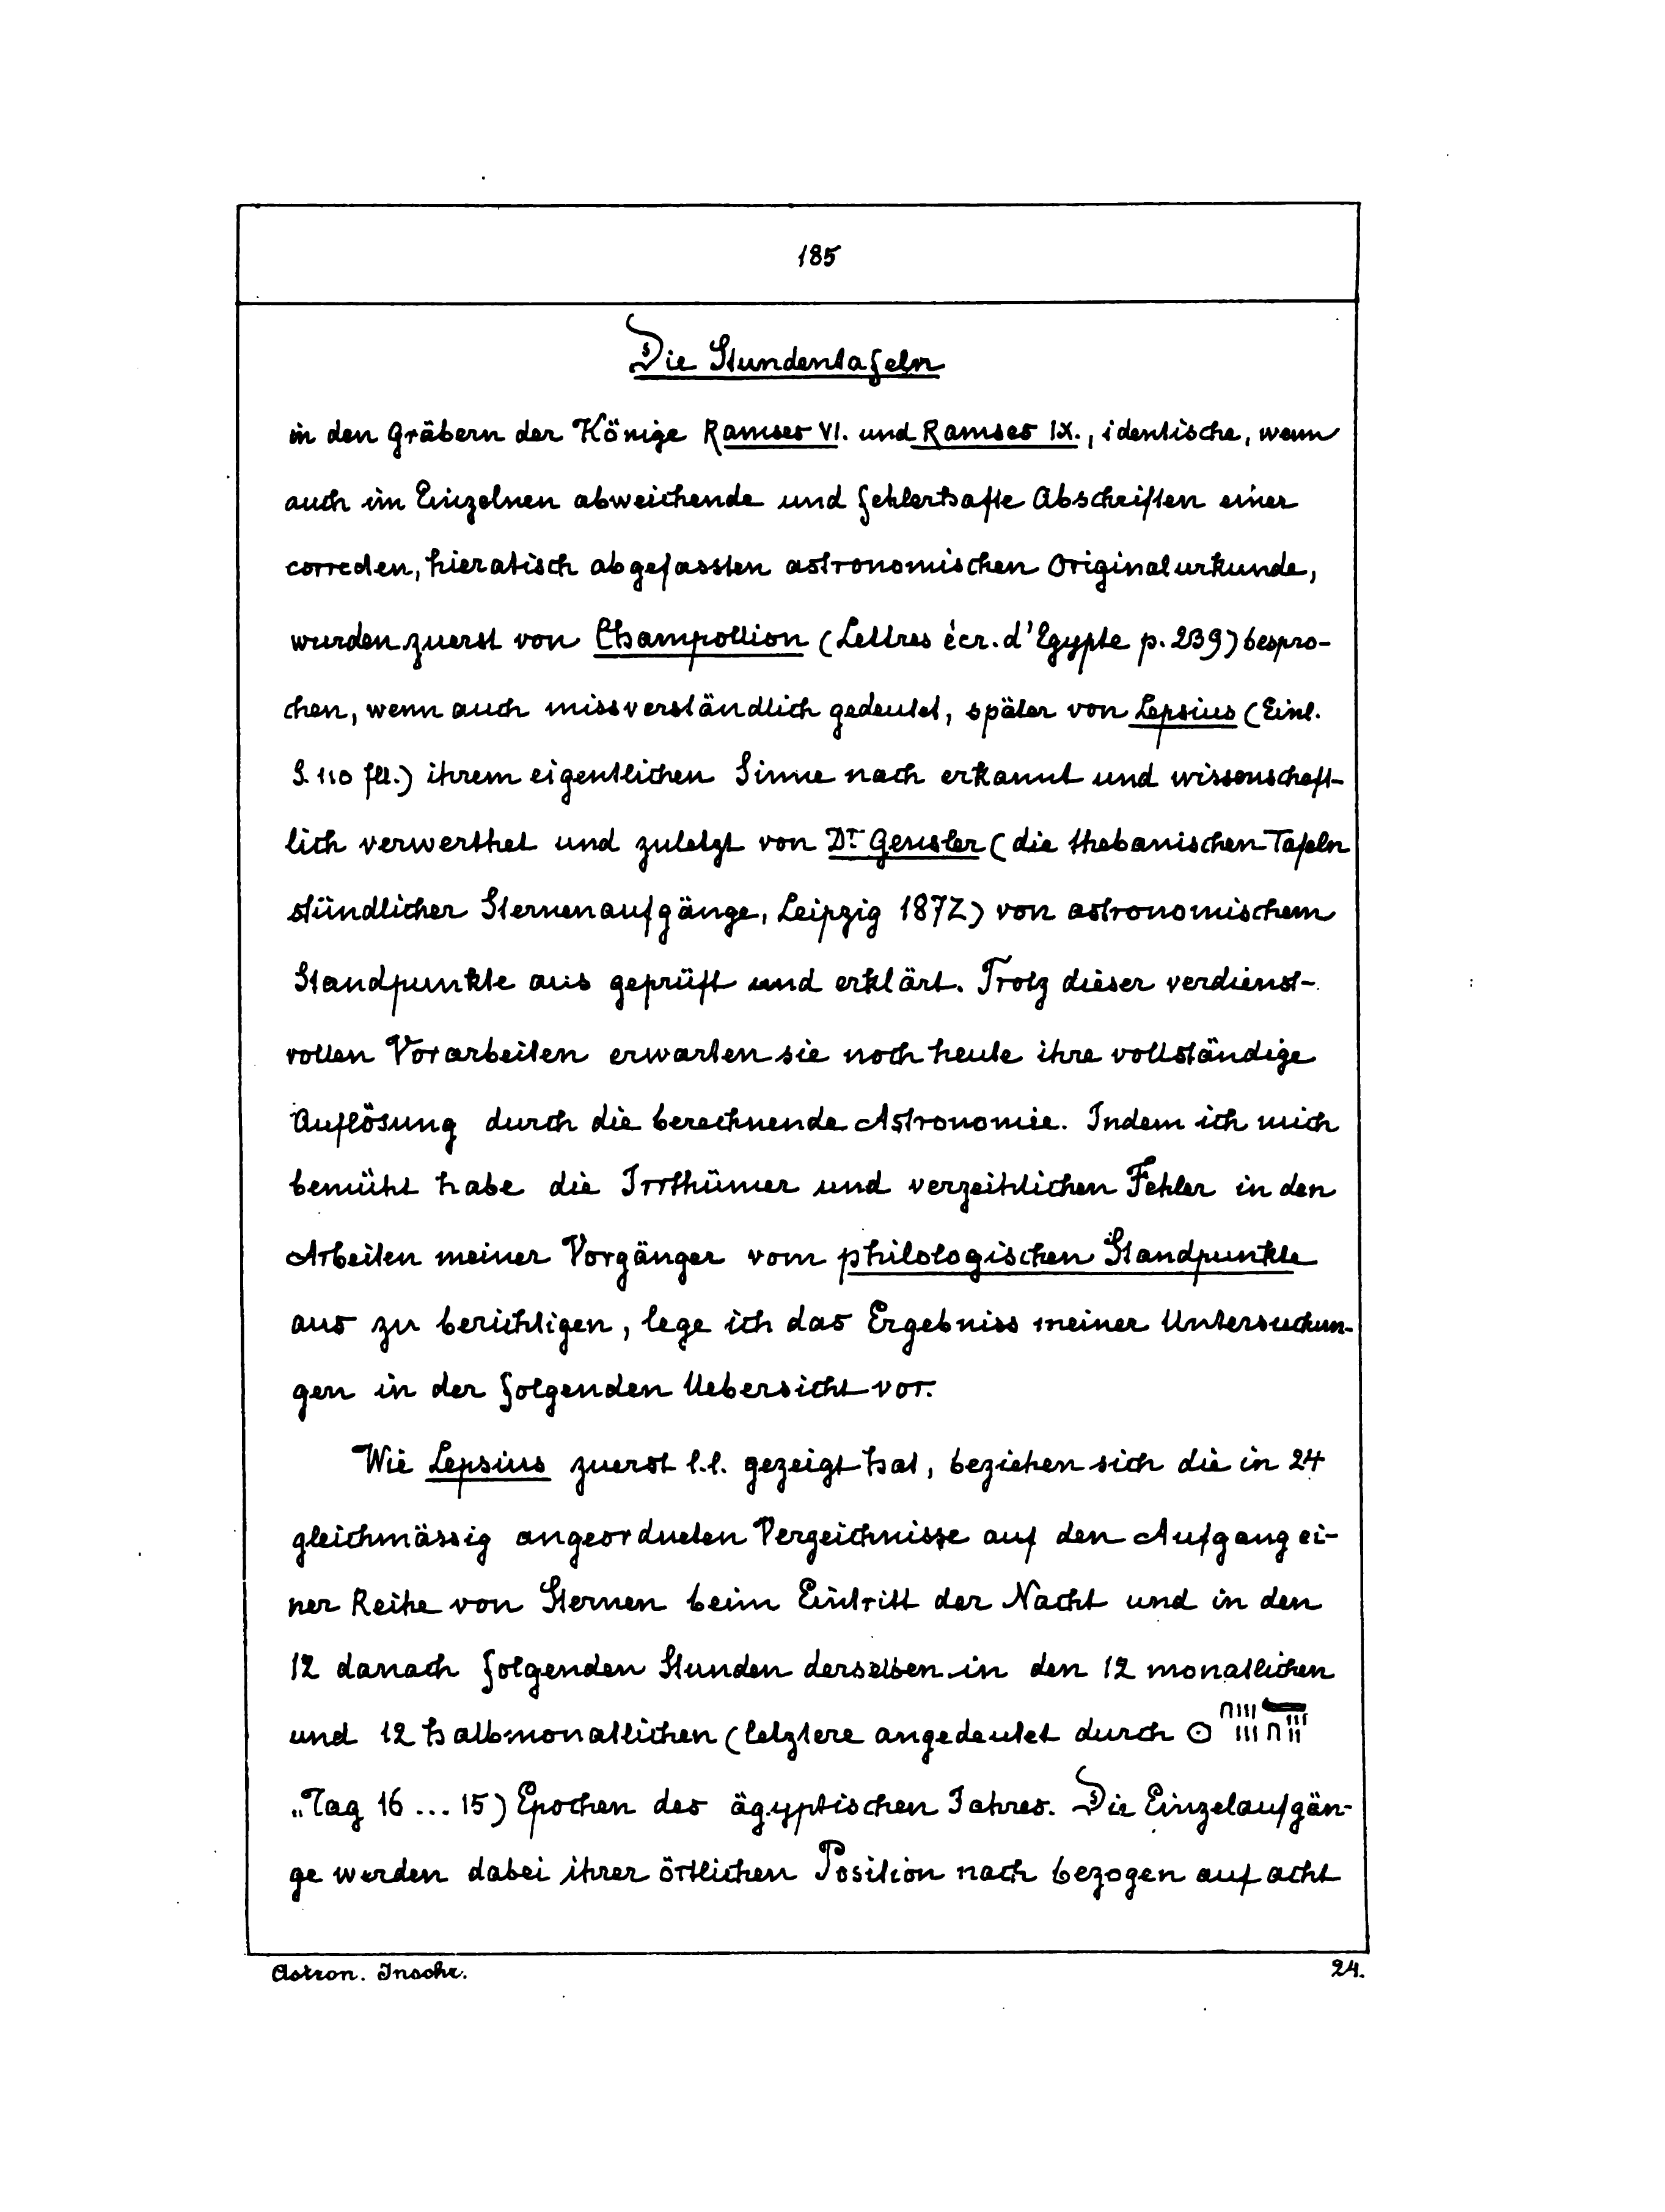 185
Die Stundentafeln
in den Gräbern der Könige Ramses VI. und Ramses IX., identische, wenn
auch im Einzelnen abweichende und fehlerhafte Abschriften einer
correcten, hieratisch abgefassten astronomischen Originalurkunde,
wurden zuerst von Champollion (Lettres écr. d'Egypte p. 239) bespro-
chen, wenn auch missverständlich gedeutet, später von Lepsius (Einl.
S. 110 fll.) ihrem eigentlichen Sinne nach erkannt und wissenschaft-
lich verwerthet und zuletzt von Dr. Gensler (die thebanischen Tafeln
stündlicher Sternenaufgänge, Leipzig 1872) von astronomischem
Standpunkte aus geprüft und erklärt. Trotz dieser verdienst-
vollen Vorarbeiten erwarten sie noch heute ihre vollständige
Auflösung durch die berechnende Astronomie. Indem ich mich
bemüht habe die Irrthümer und verzeihlichen Fehler in den
Arbeiten meiner Vorgänger vom philologischen Standpunkte
aus zu berichtigen, lege ich das Ergebniss meiner Untersuchun-
gen in der folgenden Uebersicht vor.
Wie Lepsius zuerst l.l. gezeigt hat, beziehen sich die in 24
gleichmässig angeordneten Verzeichnisse auf den Aufgang ei-
ner Reihe von Sternen beim Eintritt der Nacht und in den
12 danach folgenden Stunden derselben in den 12 monatlichen
und 12 halbmonatlichen (letztere angedeutet durch
„Tag 16 ... 15) Epochen des ägyptischen Jahres. Die Einzelaufgän-
ge werden dabei ihrer örtlichen Position nach bezogen auf acht
Astron. Inschr. 24.